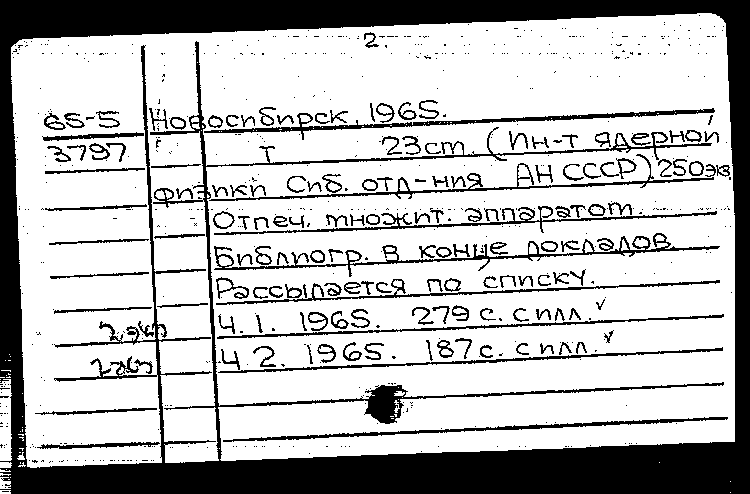 2.
65-5 Новосибирск, 1965.
3797 т 23cm. (Ин-т ядерной
физики Сиб. отд-ния АН СССР) 250экз.
Отпеч. множит. аппаратом.
Библиогр. в конце докладов.
Рассылается по списку.
2 экз Ч. 1. 1965. 279 с. с илл. ✓
2 экз Ч 2. 1965. 187 с. с илл. ✓